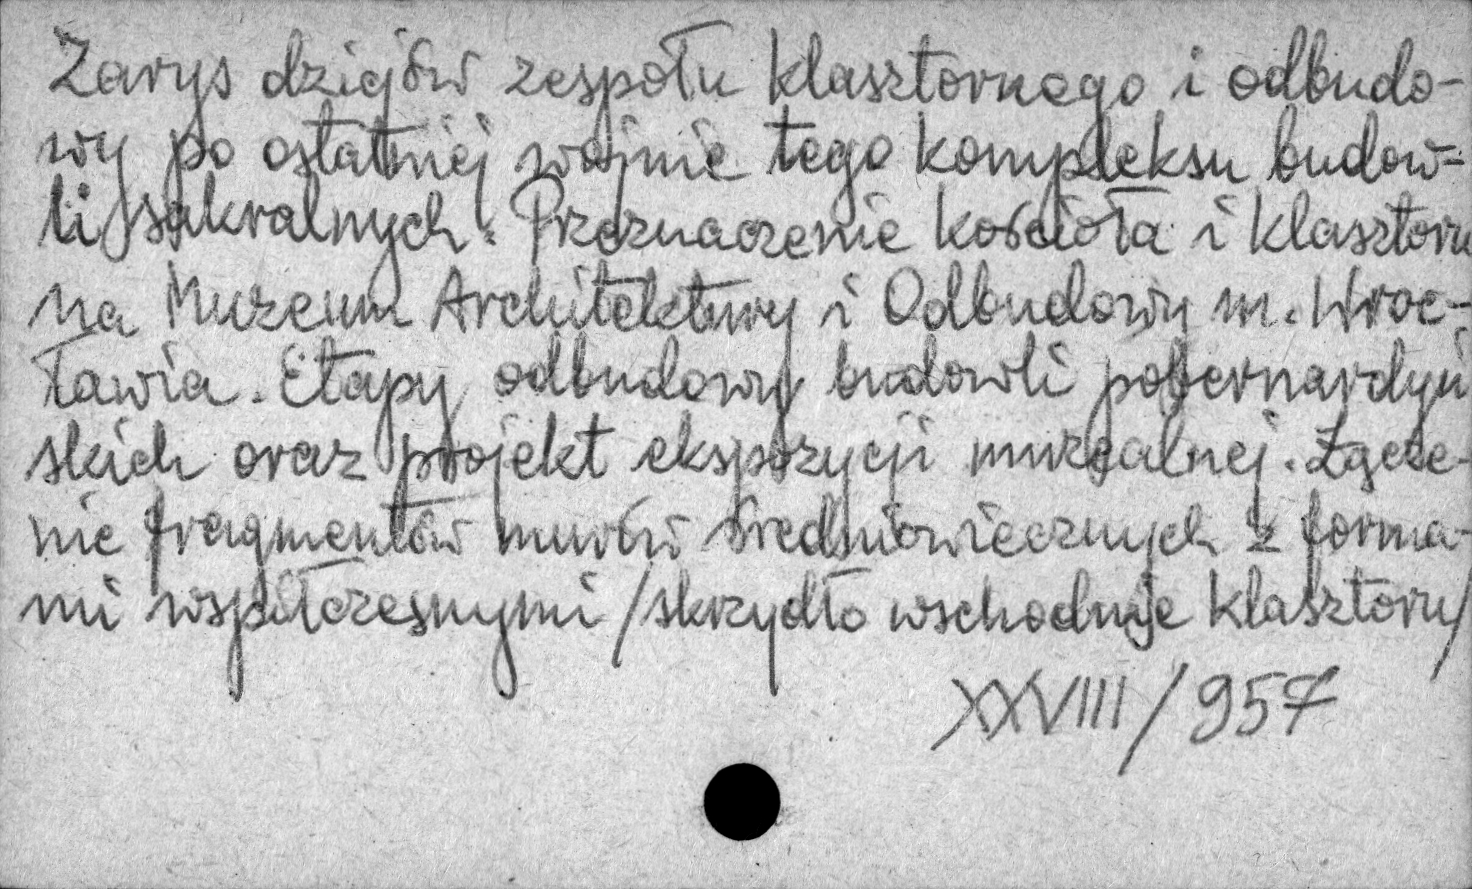 Zarys dziejów zespołu klasztornego i odbudo-
wy po ostatniej wojnie tego kompleksu budow-
li sakralnych. Przeznaczenie kościoła i klasztoru
na Muzeum Architektury i Odbudowy m. Wroc-
ławia. Etapy odbudowy budowli pobernardyń
skich oraz projekt ekspozycji muzealnej.
nie fragmentów murów średniowiecznych z forma-
mi współczesnymi /skrzydło wschodnie klasztoru/
XXVIII/957